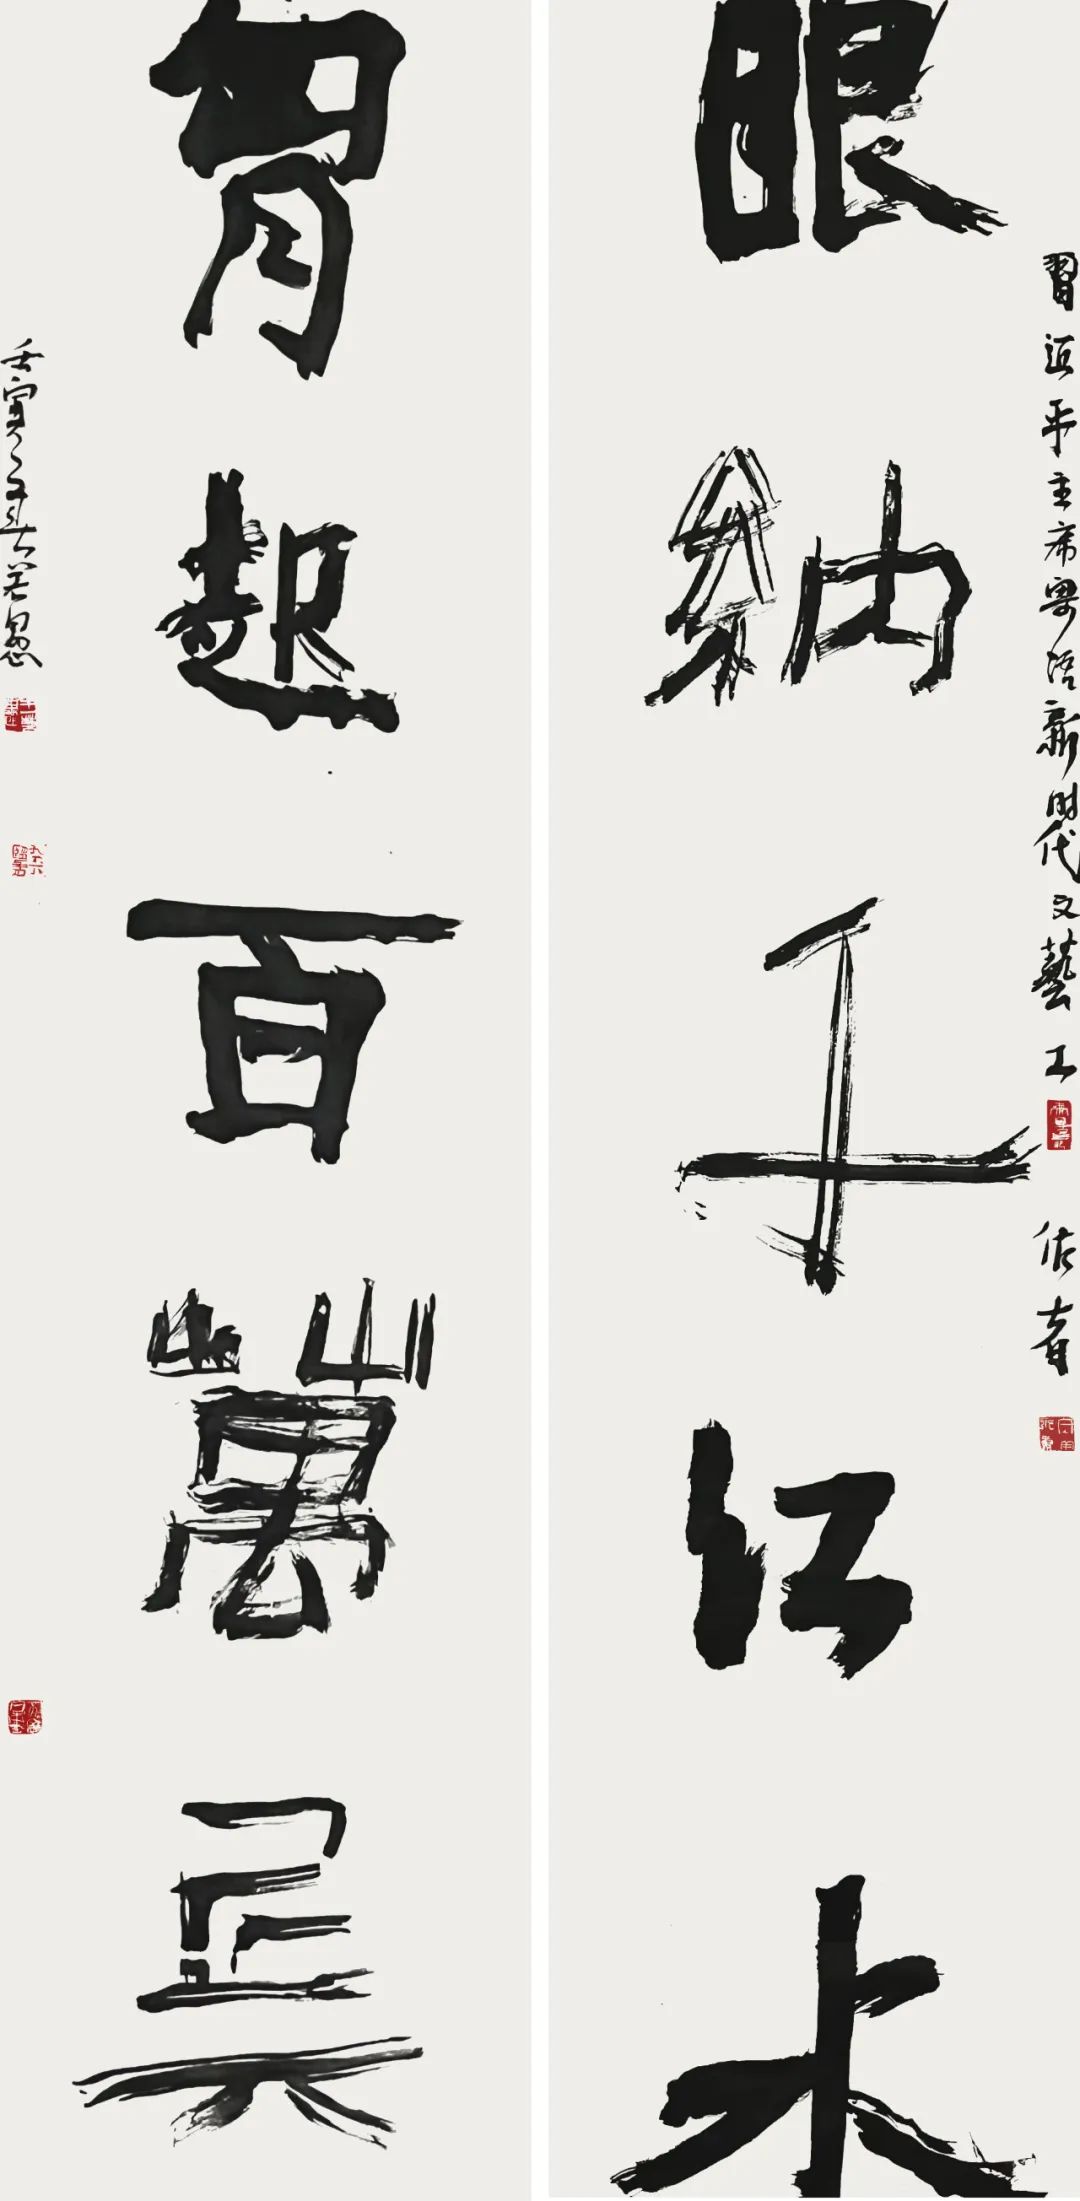 眼納千江水
胃起百萬兵
習近平主席寄語新時代文藝工作者
壬寅年大若愚